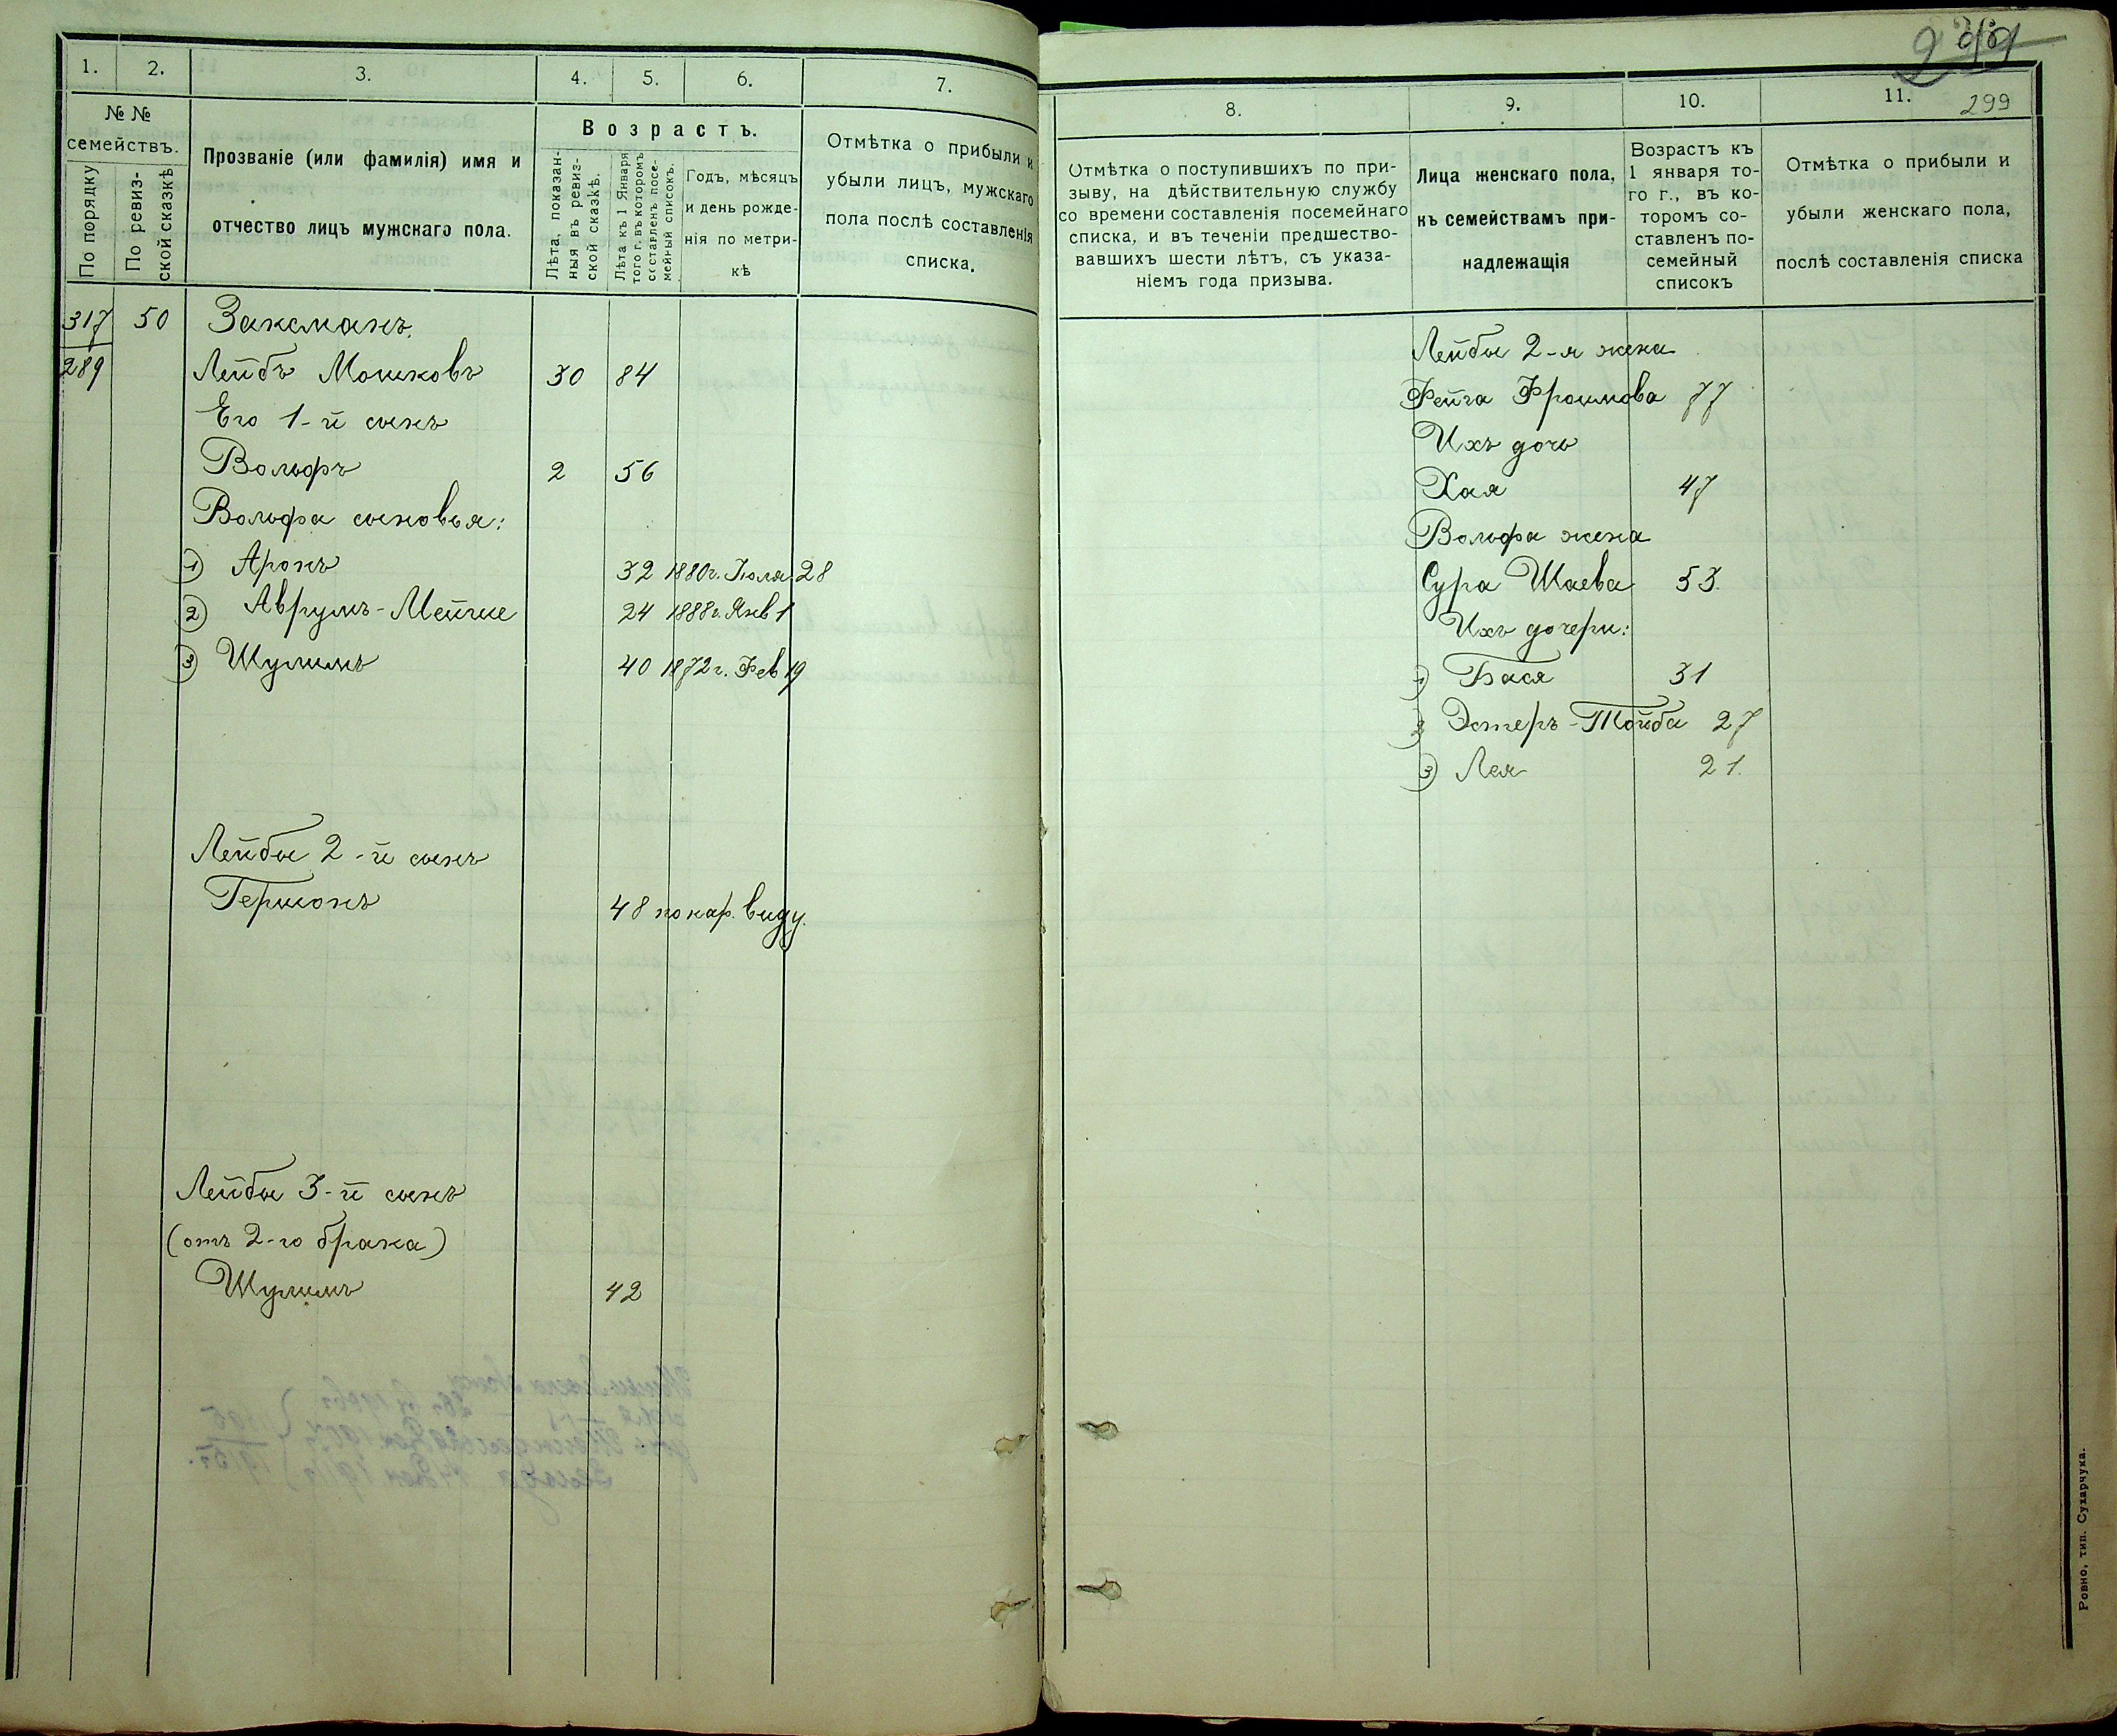 1. 2. 3. 4. 5. 6. 7.
№ №
семействъ.
По порядку
По ревиз-
ской сказкѣ
Прозваніе (или фамилія) имя и
отчество лицъ мужскаго пола.
Возрастъ.
Лѣта, показан-
ныя въ ревиз-
ской сказкѣ.
Лѣта къ 1 Января
того г. въ которомъ
составленъ посе-
мейный списокъ.
Годъ, мѣсяцъ
и день рожде-
нія по метри-
кѣ
Отмѣтка о прибыли и
убыли лицъ, мужскаго
пола послѣ составленія
списка.
317 50 Заксманъ.
289 Лейбъ Мошковъ 30 84
Его 1-й сынъ
Вольфъ 2 56
Вольфа сыновья:
1) Аронъ 32 1880г. Іюля 28
2) Аврумъ-Мейше 24 1888г. Янв 1
3) Шулимъ 40 1872г. Фев 19
Лейбы 2-й сынъ
Гершонъ 48 по нар. виду.
Лейбы 3-й сынъ
(отъ 2-го брака)
Шулимъ 42
299
8. 9. 10. 11.
Отмѣтка о поступившихъ по при-
зыву, на дѣйствительную службу
со времени составленія посемейнаго
списка, и въ теченіи предшество-
вавшихъ шести лѣтъ, съ указа-
ніемъ года призыва.
Лица женскаго пола,
къ семействамъ при-
надлежащія
Возрастъ къ
1 января то-
го г., въ ко-
торомъ со-
ставленъ по-
семейный
списокъ
Отмѣтка о прибыли и
убыли женскаго пола,
послѣ составленія списка
Лейбы 2-я жена
Фейга Фроимова 77
Ихъ дочь
Хая 47
Вольфа жена
Сура Шаева 53.
Ихъ дочери:
1) Бася 31
2) Эстеръ-Тойба 27
3) Лея 21.
Ровно, тип. Сухарчука.